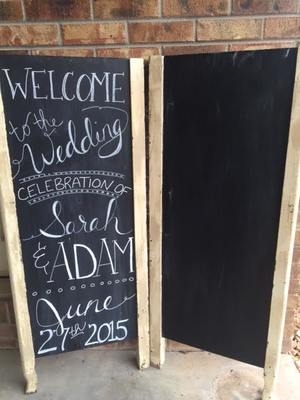 WELCOME
to the
Wedding
CELEBRATION OF
Sarah
& ADAM
June
27th 2015